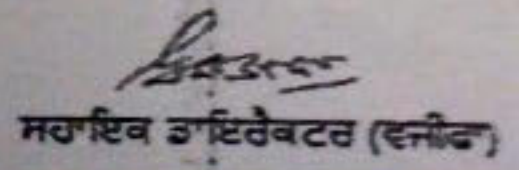 ਸਹਾਇਕ ਡਾਇਰੈਕਟਰ (ਵਜੀਫਾ)